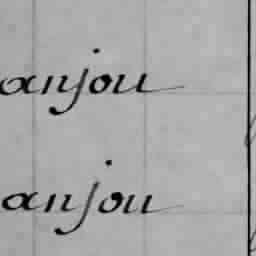 anjou
anjou